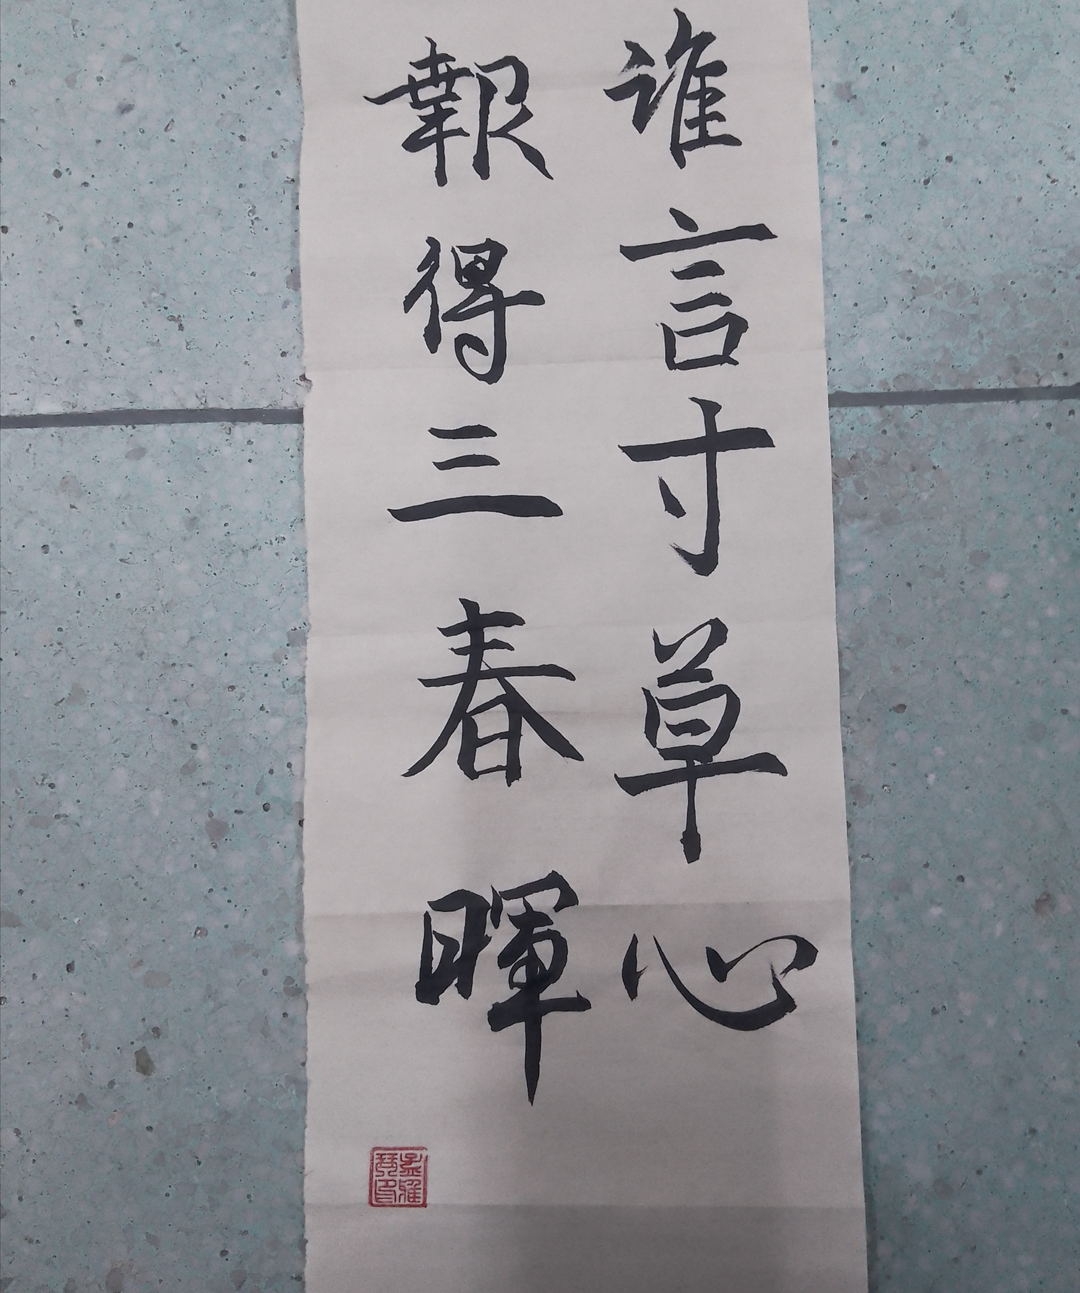 谁言寸草心
報得三春暉